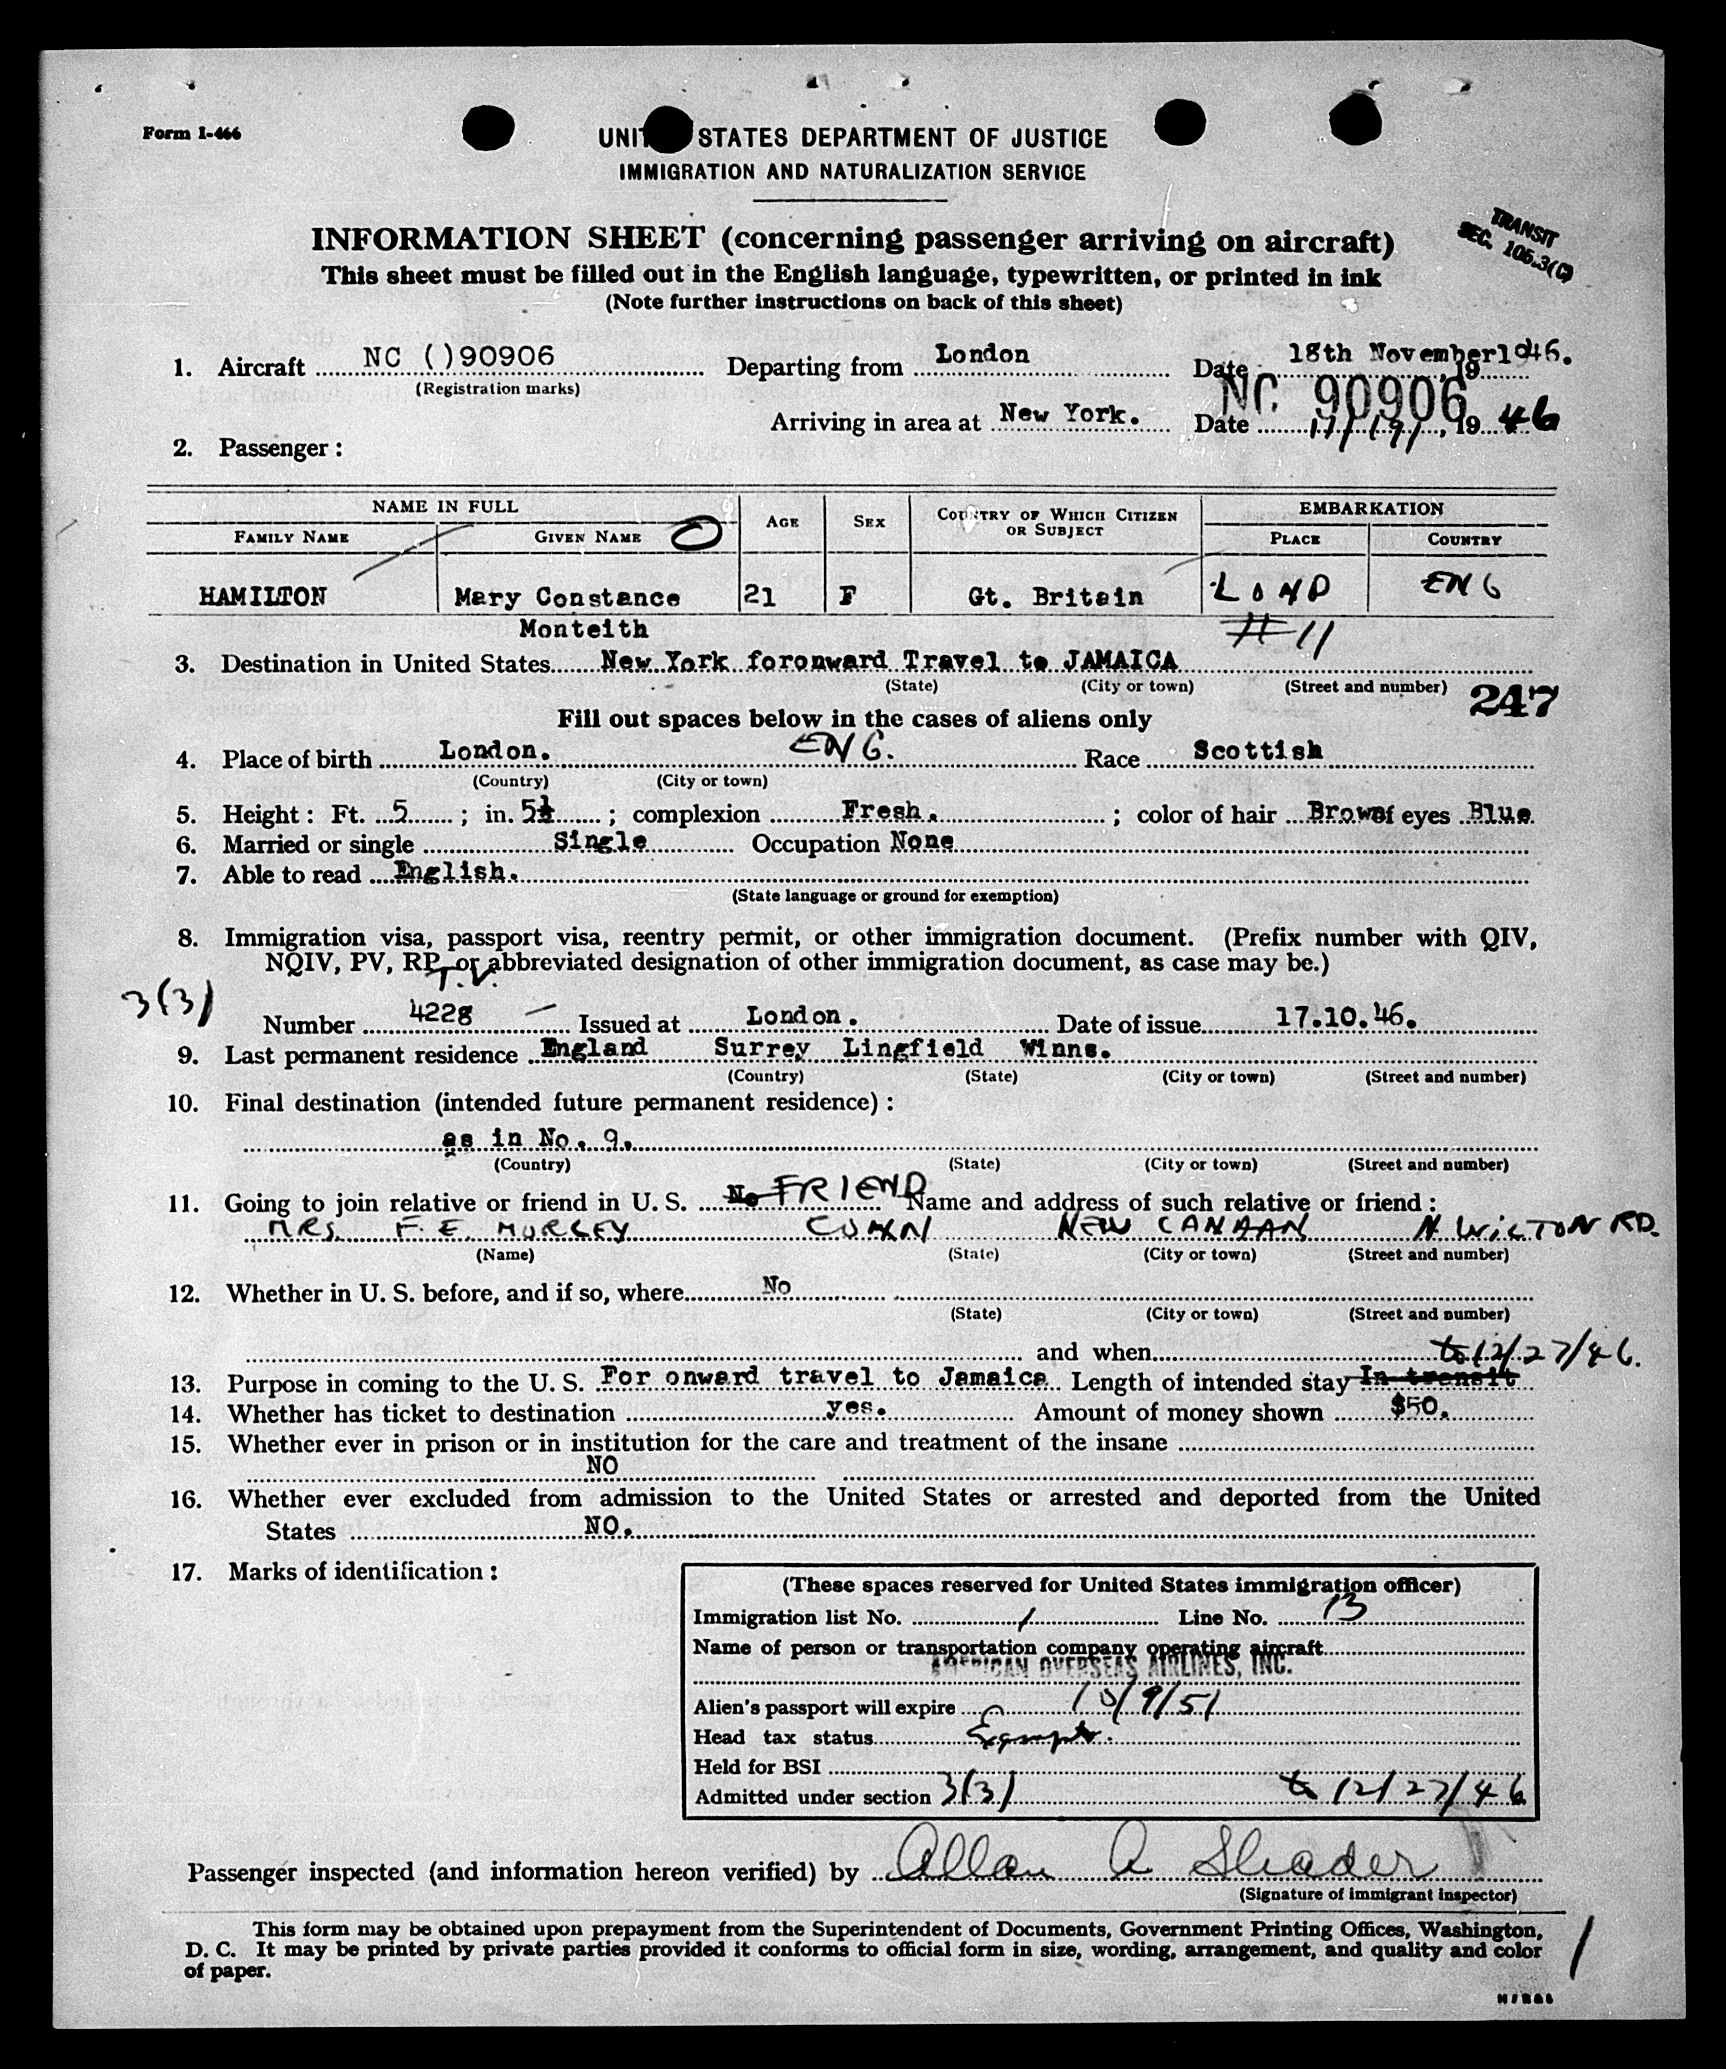 Form I-466
UNITED STATES DEPARTMENT OF JUSTICE
IMMIGRATION AND NATURALIZATION SERVICE
INFORMATION SHEET (concerning passenger arriving on aircraft)
TRANSIT
SEC. 105.3(C)
This sheet must be filled out in the English language, typewritten, or printed in ink
(Note further instructions on back of this sheet)
1. Aircraft NC ()90906 Departing from London Date 18th November 1946.
(Registration marks)
NC 90906
Arriving in area at New York. Date 11/19/, 1946
2. Passenger:
NAME IN FULL AGE SEX COUNTRY OF WHICH CITIZEN OR SUBJECT EMBARKATION
FAMILY NAME GIVEN NAME PLACE COUNTRY
HAMILTON Mary Constance 21 F Gt. Britain LOND ENG
Monteith #11
3. Destination in United States New York foronward Travel to JAMAICA
(State) (City or town) (Street and number) 247
Fill out spaces below in the cases of aliens only
4. Place of birth London. ENG. Race Scottish
(Country) (City or town)
5. Height: Ft. 5; in. 5½; complexion Fresh.; color of hair Brown of eyes Blue
6. Married or single Single Occupation None
7. Able to read English.
(State language or ground for exemption)
8. Immigration visa, passport visa, reentry permit, or other immigration document. (Prefix number with QIV,
NQIV, PV, RP, or abbreviated designation of other immigration document, as case may be.)
T.V.
3(3)
Number 4228 Issued at London. Date of issue 17.10.46.
9. Last permanent residence England Surrey Lingfield Winns.
(Country) (State) (City or town) (Street and number)
10. Final destination (intended future permanent residence):
as in No. 9.
(Country) (State) (City or town) (Street and number)
11. Going to join relative or friend in U. S. No FRIEND Name and address of such relative or friend:
MRS. F. E. MORLEY CONN NEW CANAAN N. WILTON RD.
(Name) (State) (City or town) (Street and number)
12. Whether in U. S. before, and if so, where No
(State) (City or town) (Street and number)
and when to 12/27/46.
13. Purpose in coming to the U. S. For onward travel to Jamaica Length of intended stay In transit
14. Whether has ticket to destination yes. Amount of money shown $50.
15. Whether ever in prison or in institution for the care and treatment of the insane
NO
16. Whether ever excluded from admission to the United States or arrested and deported from the United
States NO.
17. Marks of identification:
(These spaces reserved for United States immigration officer)
Immigration list No. 1 Line No. 13
Name of person or transportation company operating aircraft
AMERICAN OVERSEAS AIRLINES, INC.
Alien's passport will expire 10/9/51
Head tax status Exempt.
Held for BSI
Admitted under section 3(3) to 12/27/46
Passenger inspected (and information hereon verified) by Allan A Shader
(Signature of immigrant inspector)
This form may be obtained upon prepayment from the Superintendent of Documents, Government Printing Offices, Washington,
D. C. It may be printed by private parties provided it conforms to official form in size, wording, arrangement, and quality and color
of paper.